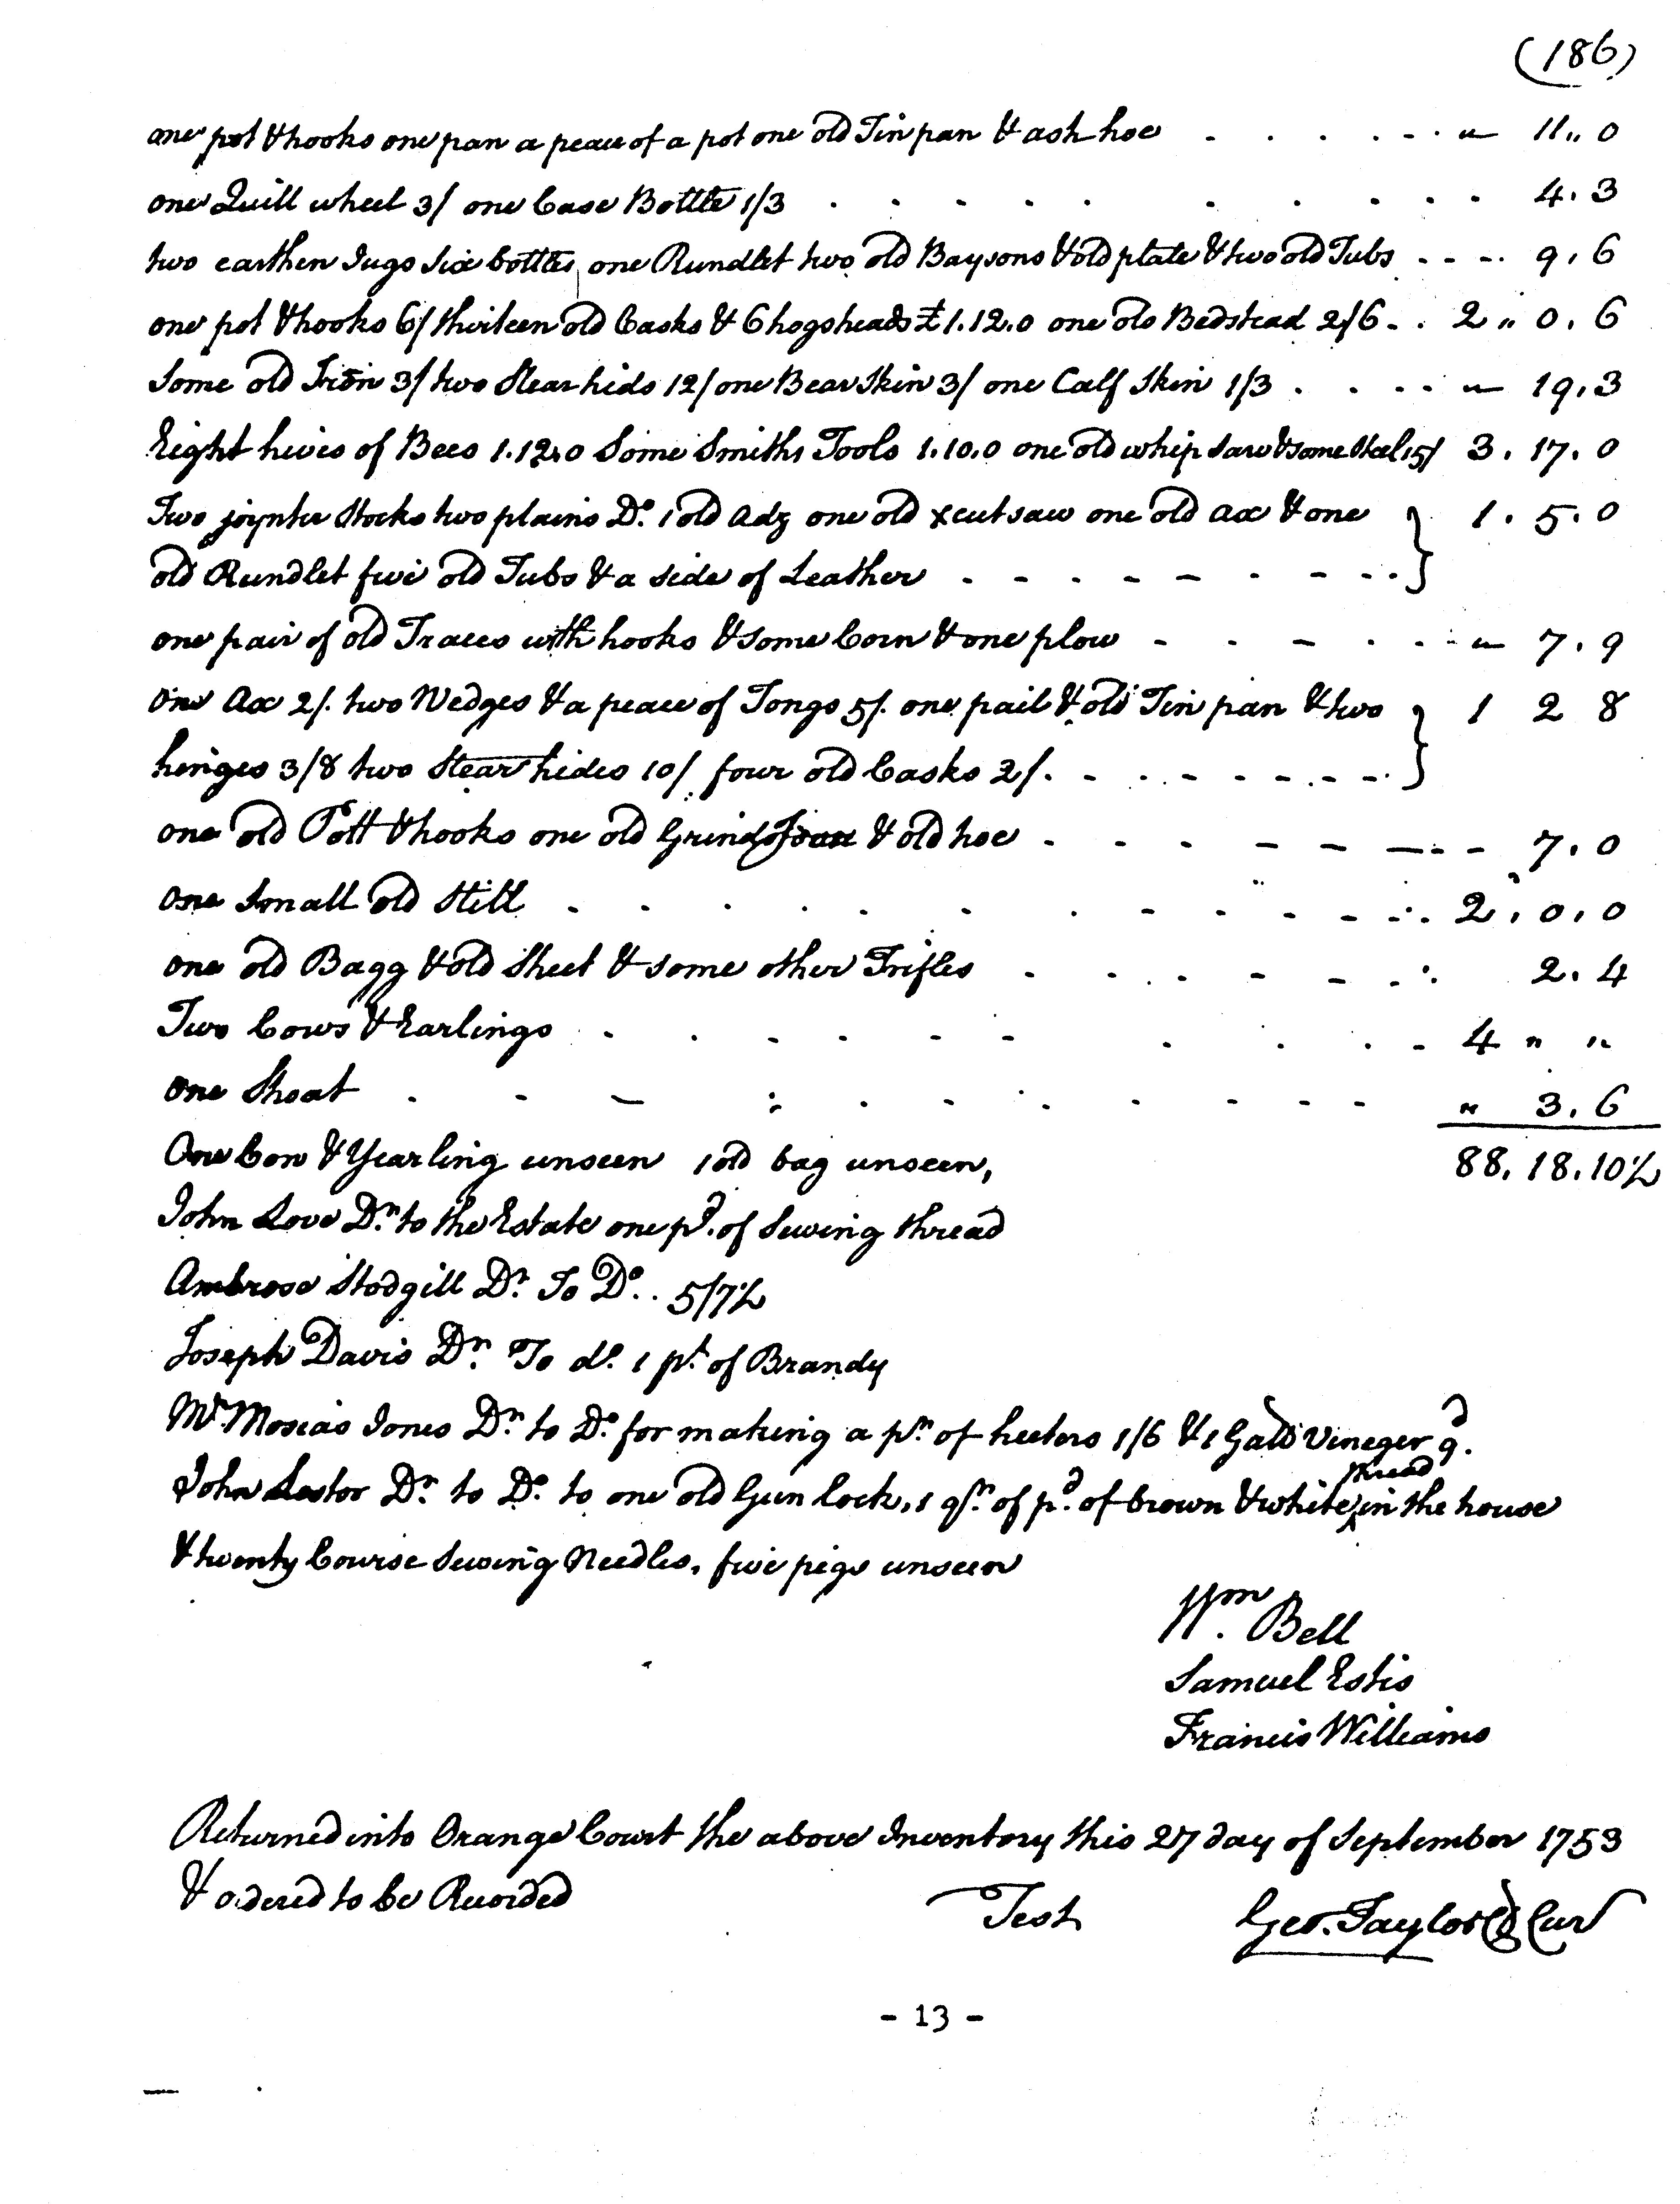 (186)
one pot & hooks one pan a peace of a pot one old Tin pan & ash hoe . . . . . . " 11,, 0
one Quill wheel 3/ one Case Bottle 1/3 . . . . . . . . . . 4. 3
two earthen Jugs Six bottles one Rundlet two old Baysons & old plate & two old Tubs . . . . 9, 6
one pot & hooks 6/ thirteen old Casks & 6 hogsheads £1.12.0 one old Bedstead 2/6 . . 2 ,, 0. 6
Some old Iron 3/ two Stear hids 12/ one Bear Skin 3/ one Calf Skin 1/3 . . . . . " 19, 3
Eight hives of Bees 1.12.0 Some Smiths Tools 1.10.0 one old whip saw & some Steel 15/ 3. 17. 0
Two joynter Stocks two plains Do. 1 old Adz one old xcut saw one old ax & one } 1. 5. 0
old Rundlet five old Tubs & a side of Leather - - - - - - - - . . }
one pair of old Traces with hooks & some Corn & one plow - - - . . . " 7. 9
One Ax 2/. two Wedges & a peace of Tongs 5/. one pail & old Tin pan & two } 1 2 8
hinges 3/8 two Stear hides 10/ four old Casks 2/. - . - - - - - - . }
one old Pott & hooks one old Grind & old hoe . - . - - - - - - 7. 0
One Small old Still . . . . . . . . - - - - . . 2, 0, 0
one old Bagg & old Sheet & some other Trifles . . . - - - . . 2. 4
Two Cows & Earlings . . . . - - . . . - 4 " "
One Shoat . - - . . . . . - - - " 3. 6
One Cow & Yearling unseen 1 old bag unseen, 88. 18. 10½
John Love Dr. to the Estate one pd. of Sewing thread
Ambrose Stodgill Dr. To Do. . 5/7½
Joseph Davis Dr. To do. 1 pt. of Brandy
Mr. Moseas Jones Dr. to Do. for making a pr. of heeters 1/6 & 1 Gald Vineger 9d.
John Lestor Dr. to Do. to one old Gun lock, 1 qr. of pd. of brown & white thread in the house
& twenty Course Sewing Needles, five pigs unseen
Wm. Bell
Samuel Estis
Francis Williams
Returned into Orange Court the above Inventory this 27 day of September 1753
& odered to be Recorded
Test Geo. Taylor Cur
- 13 -